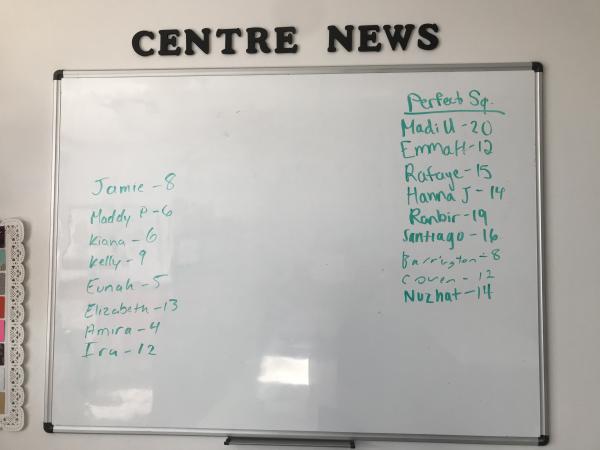 CENTRE NEWS
Jamie - 8
Maddy P - 6
Kiana - 6
Kelly - 9
Eunah - 5
Elizabeth - 13
Amira - 4
Ira - 12
Perfect Sq.
Madi U - 20
Emma H - 12
Rafaye - 15
Hanna J - 14
Ranbir - 19
Santiago - 16
Barrington - 8
Coven - 12
Nuzhat - 14